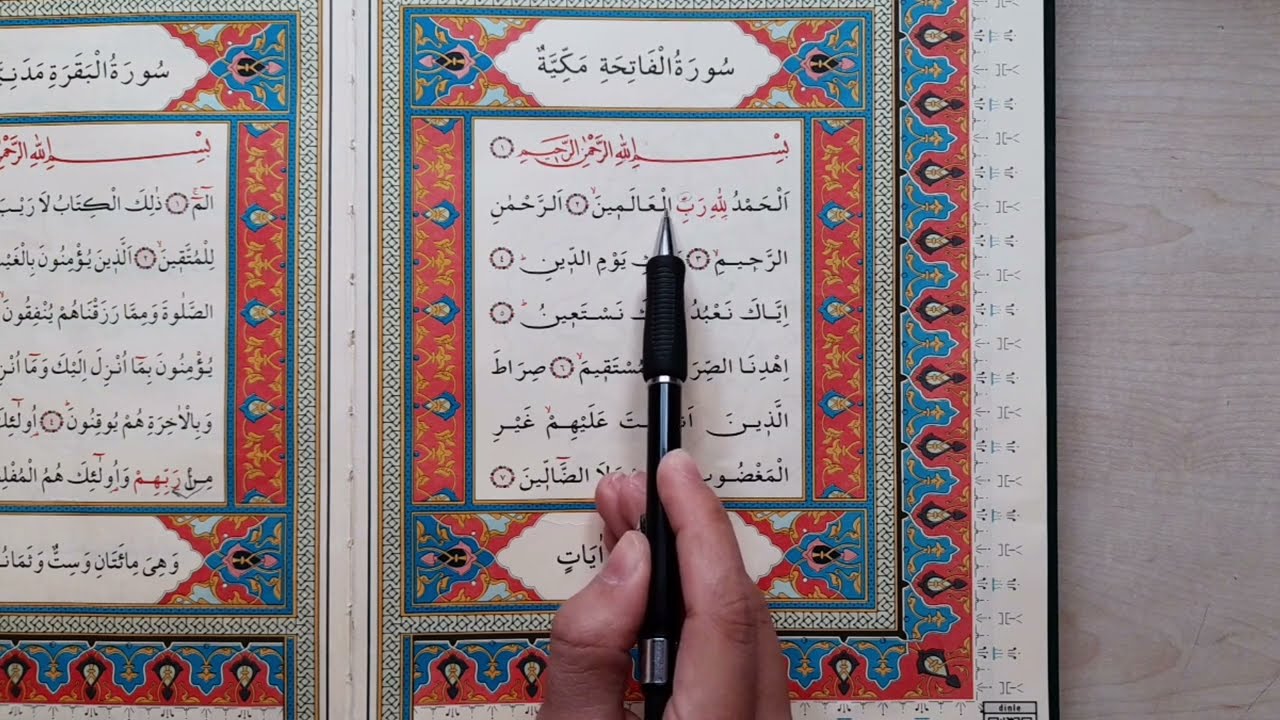 سُورَةُ الْفَاتِحَةِ مَكِّيَّةٌ
بِسْمِ اللهِ الرَّحْمٰنِ الرَّحِيمِ ﴿١﴾
اَلْحَمْدُ لِلّٰهِ رَبِّ الْعَالَمٖينَۙ ﴿٢﴾ اَلرَّحْمٰنِ
الرَّحٖيمِۙ ﴿٣﴾ يَوْمِ الدّٖينِۜ ﴿٤﴾
اِيَّاكَ نَعْبُدُ نَسْتَعٖينُۜ ﴿٥﴾
اِهْدِنَا الْمُسْتَقٖيمَۙ ﴿٦﴾ صِرَاطَ
الَّذٖينَ عَلَيْهِمْۙ غَيْرِ
الضَّٓالّٖينَ ﴿٧﴾
اٰيَاتٍ
سُورَةُ الْبَقَرَةِ
بِسْمِ اللهِ
الٓمٓۚ ﴿١﴾ ذٰلِكَ الْكِتَابُ لَا رَيْبَ
لِلْمُتَّقٖينَۙ ﴿٢﴾ اَلَّذٖينَ يُؤْمِنُونَ
الصَّلٰوةَ وَمِمَّا رَزَقْنَاهُمْ يُنْفِقُونَۙ
يُؤْمِنُونَ بِمَٓا اُنْزِلَ اِلَيْكَ وَمَٓا
وَبِالْاٰخِرَةِ هُمْ يُوقِنُونَۜ ﴿٤﴾
مِنْ رَبِّهِمْ وَاُو۬لٰٓئِكَ هُمُ
وَهِىَ مِائَتَانِ وَسِتٌّ
dinle